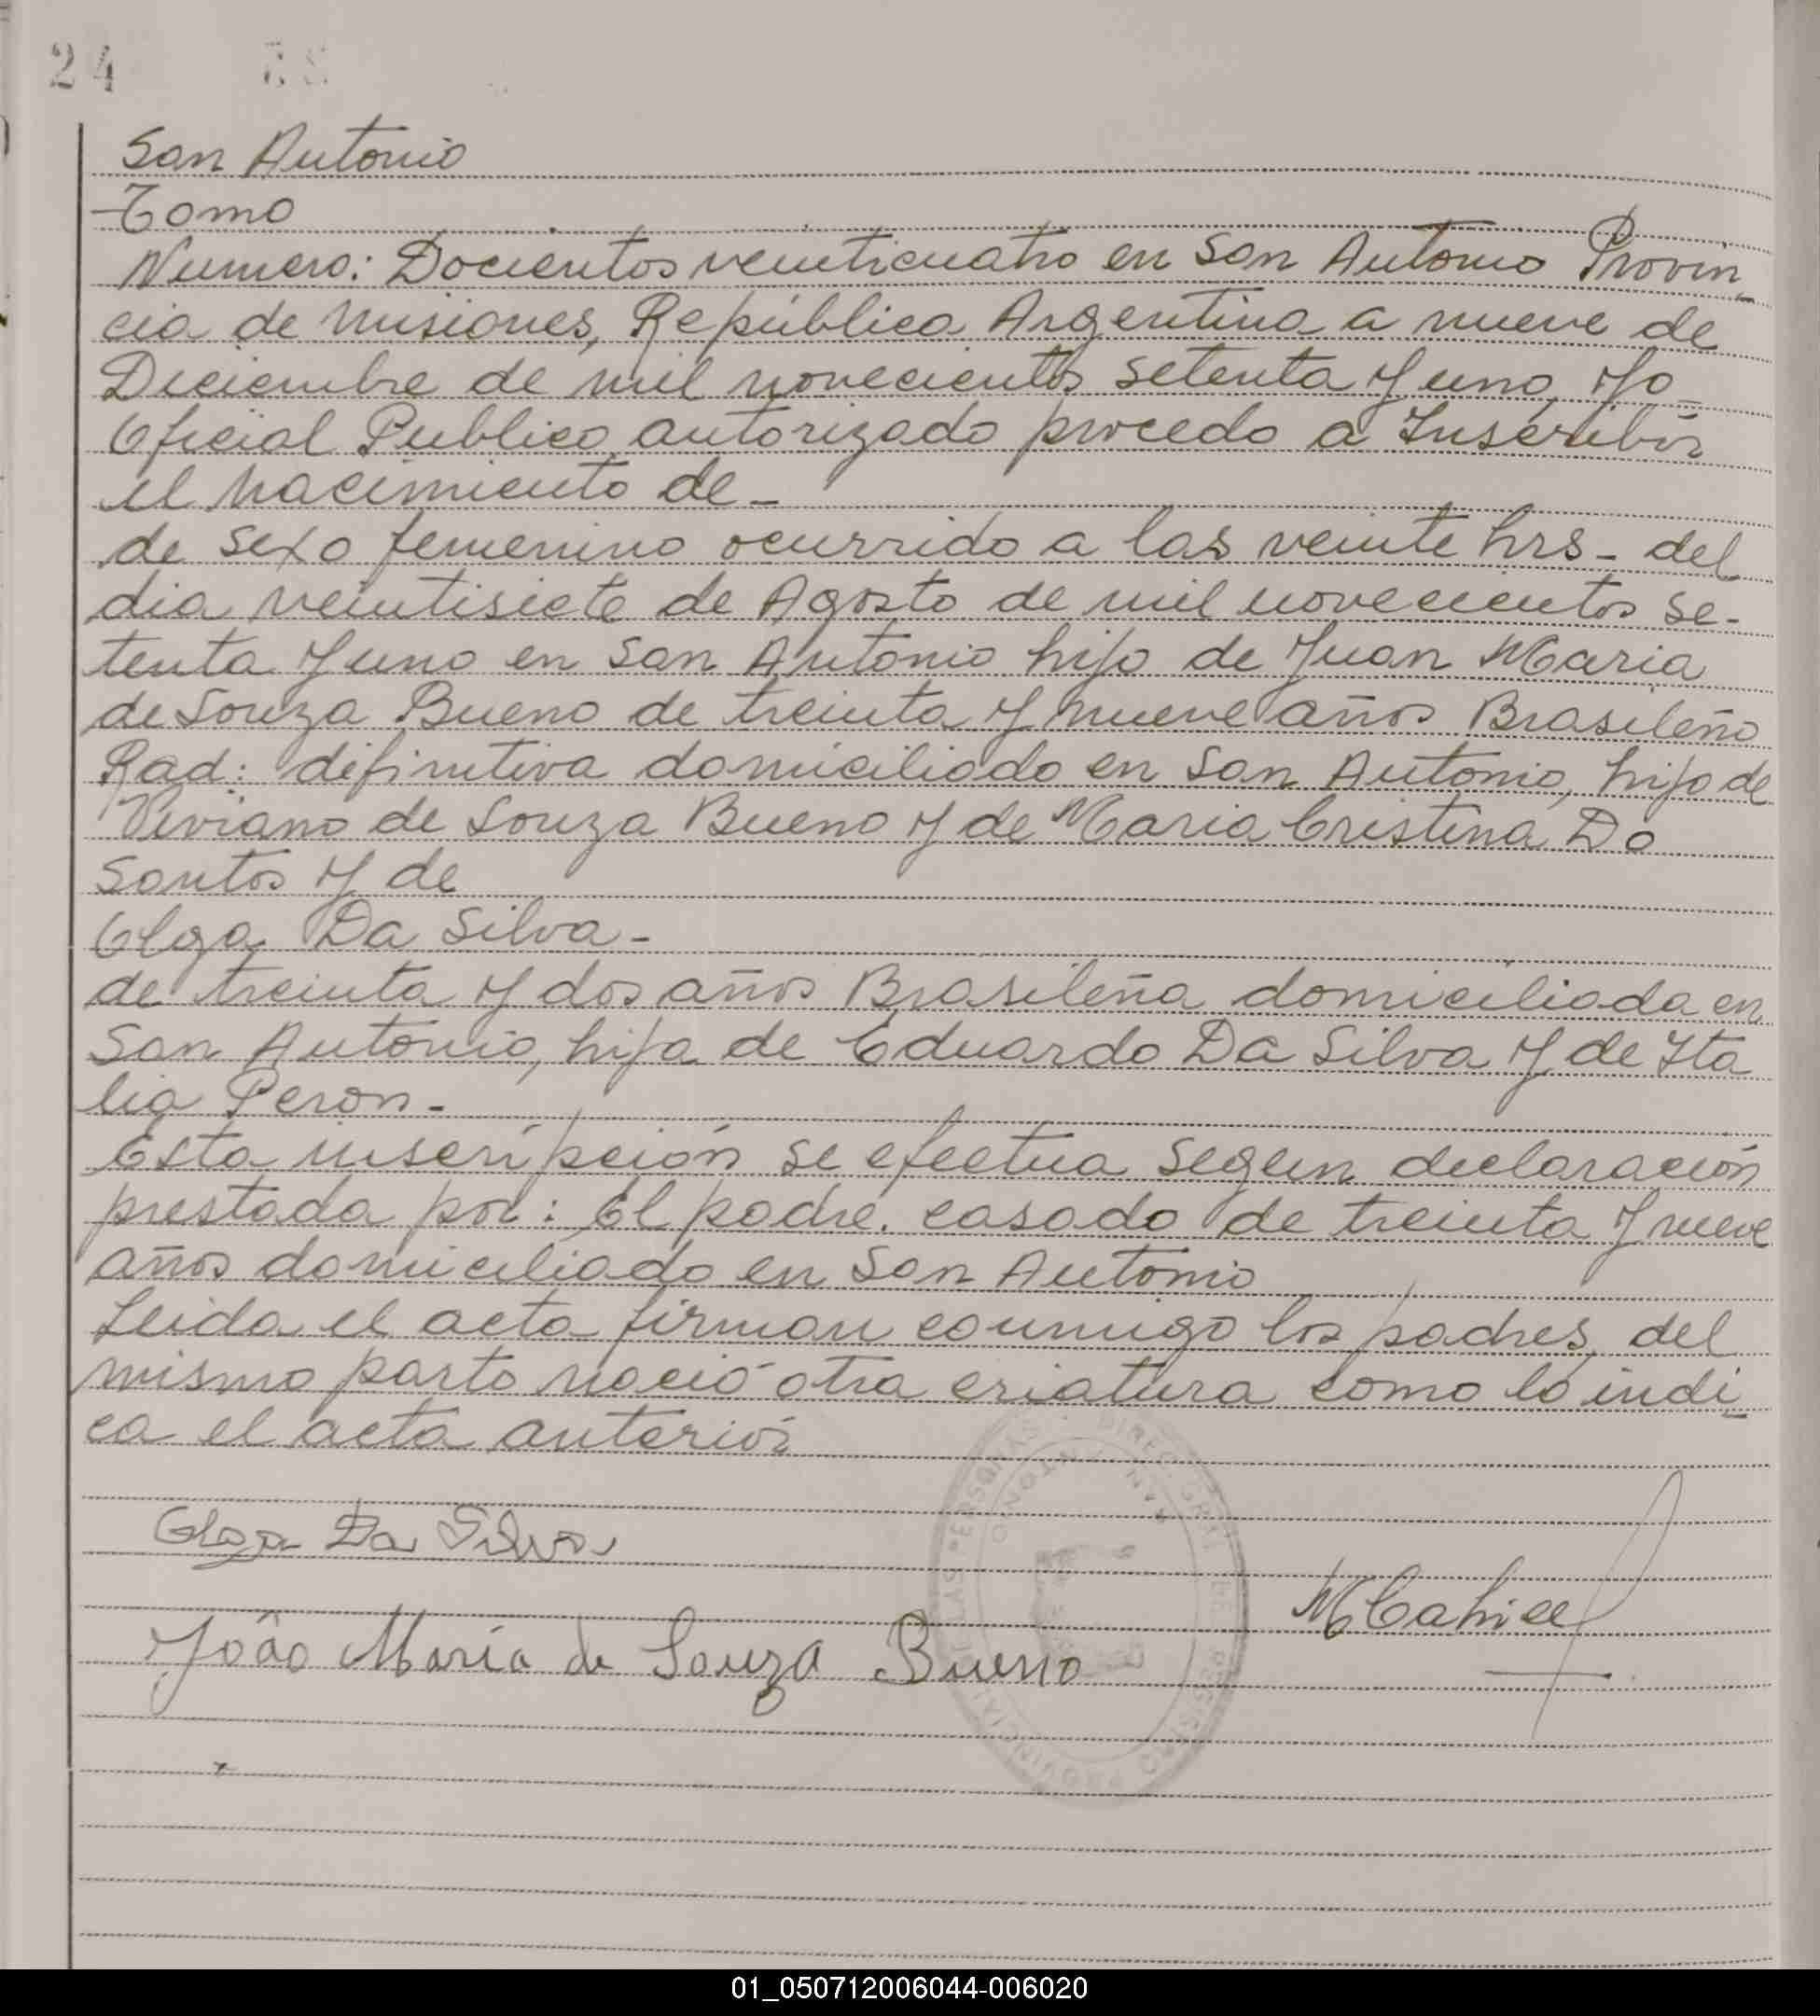 24
San Antonio
Tomo
Numero: Docientos veinticuatro en San Antonio Provin_
cia de Misiones, República Argentina a nueve de
Diciembre de mil novecientos setenta y uno, Yo_
Oficial Publico autorizado procedo a Inscribir
el nacimiento de_
de sexo femenino ocurrido a las veinte hrs_ del
dia veintisiete de Agosto de mil novecientos se_
tenta y uno en San Antonio hijo de Juan Maria
de Souza Bueno de treinta y nueve años Brasileño
Rad: difinitiva domiciliado en San Antonio, hijo de
Viviano de Souza Bueno y de Maria Cristina Do
Santos y de
Olga Da Silva_
de treinta y dos años Brasileña domiciliada en
San Antonio, hija de Eduardo Da Silva y de Ita
lia Peron_
Esta inscripción se efectua segun declaración
prestada por: El padre. casado de treinta y nueve
años domiciliado en San Antonio
Leida el acta firman conmigo los padres, del
mismo parto nació otra criatura como lo indi_
ca el acta anterior
Olga Da Silva
João Maria de Souza Bueno
01_050712006044-006020